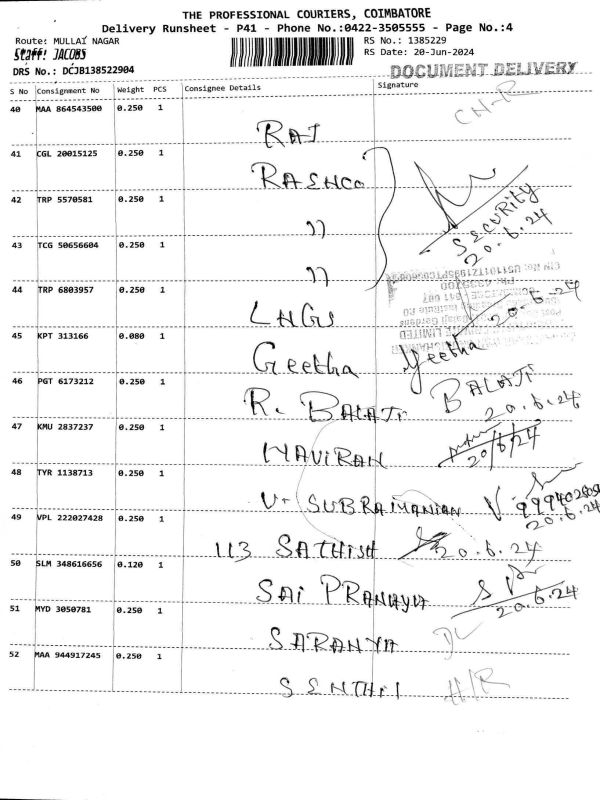 THE PROFESSIONAL COURIERS, COIMBATORE
Delivery Runsheet - P41 - Phone No.:0422-3505555 - Page No.:4
Route: MULLAI NAGAR
RS No.: 1385229
Staff: JACOBS
RS Date: 20-Jun-2024
DRS No.: DCJB138522904
DOCUMENT DELIVERY
S No Consignment No Weight PCS Consignee Details Signature
40 MAA 864543500 0.250 1
RAJ CN-R
41 CGL 20015125 0.250 1
RAENCO
42 TRP 5570581 0.250 1
" SECURITY
20.6.24
43 TCG 50656604 0.250 1
"
44 TRP 6803957 0.250 1
LNGS 20-6-24
45 KPT 313166 0.080 1
Geetha Geetha
46 PGT 6173212 0.250 1
R. BALAJI BALAJI
20.6.24
47 KMU 2837237 0.250 1
MAVIRAN 20/6/24
48 TYR 1138713 0.250 1
V- SUBRAMANIAN
20.6.24
49 VPL 222027428 0.250 1
113 SATHISH 20.6.24
50 SLM 348616656 0.120 1
SAI PRANAYA
20.6.24
51 MYD 3050781 0.250 1
SARANYA DL
52 MAA 944917245 0.250 1
SENTHIL H/R